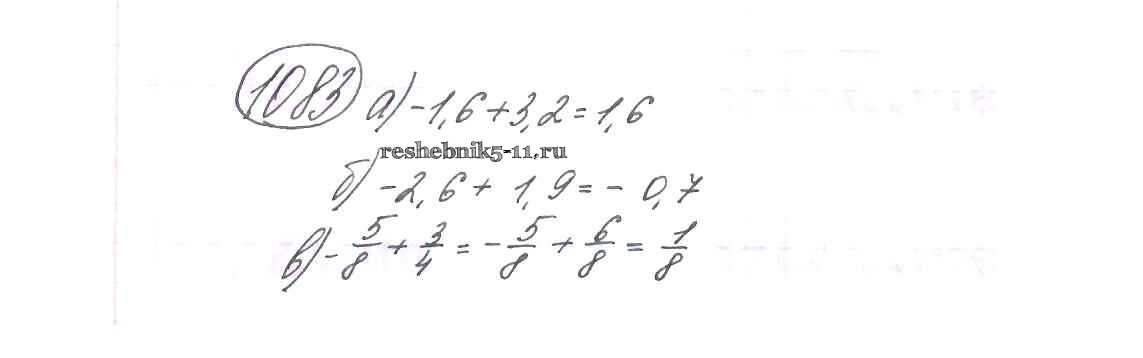 1083 а) -1,6 + 3,2 = 1,6
reshebnik5-11.ru
б) -2,6 + 1,9 = - 0,7
в) - 5/8 + 3/4 = - 5/8 + 6/8 = 1/8